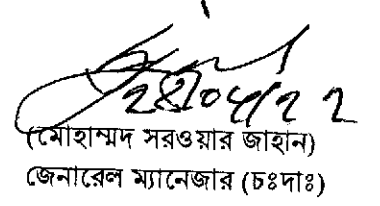 ২৪/০৪/২২
(মোহাম্মদ সরওয়ার জাহান)
জেনারেল ম্যানেজার (চঃদাঃ)